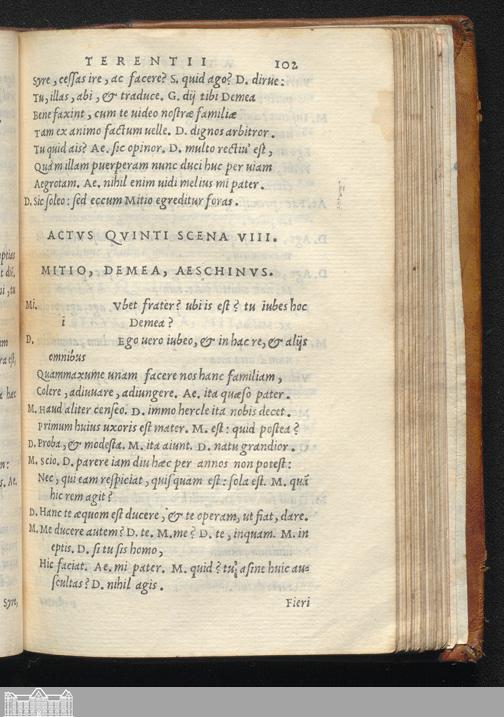 TERENTII 102
Syre, cessas ire, ac facere? S. quid ago? D. dirue:
Tu, illas, abi, & traduce. G. dij tibi Demea
Bene faxint, cum te video nostræ familiæ
Tam ex animo factum uelle. D. dignos arbitror.
Tu quid ais? Ae. sic opinor. D. multo rectiu' est,
Quàm illam puerperam nunc duci huc per uiam
Aegrotam. Ae. nihil enim uidi melius mi pater.
D. Sic soleo: sed eccum Mitio egreditur foras.
ACTVS QVINTI SCENA VIII.
MITIO, DEMEA, AESCHINVS.
Mi. Vbet frater? ubi is est? tu iubes hoc
i Demea?
D. Ego uero iubeo, & in hac re, & alijs
omnibus
Quammaxume unam facere nos hanc familiam,
Colere, adiuuare, adiungere. Ae. ita quæso pater.
M. Haud aliter censeo. D. immo hercle ita nobis decet.
Primum huius uxoris est mater. M. est: quid postea?
D. Proba, & modesta. M. ita aiunt. D. natu grandior.
M. scio. D. parere iam diu hæc per annos non potest:
Nec, qui eam respiciat, quisquam est: sola est. M. quā
hic rem agit?
D. Hanc te æquom est ducere, & te operam, ut fiat, dare.
M. Me ducere autem? D. te. M. me? D. te, inquam. M. in
eptis. D. si tu sis homo,
Hic faciat. Ae. mi pater. M. quid? tu, asine huic au-
scultas? D. nihil agis.
Fieri
ptius
t dii.
am
ra est,
a hæc
m:
s. Ae.
Syre,